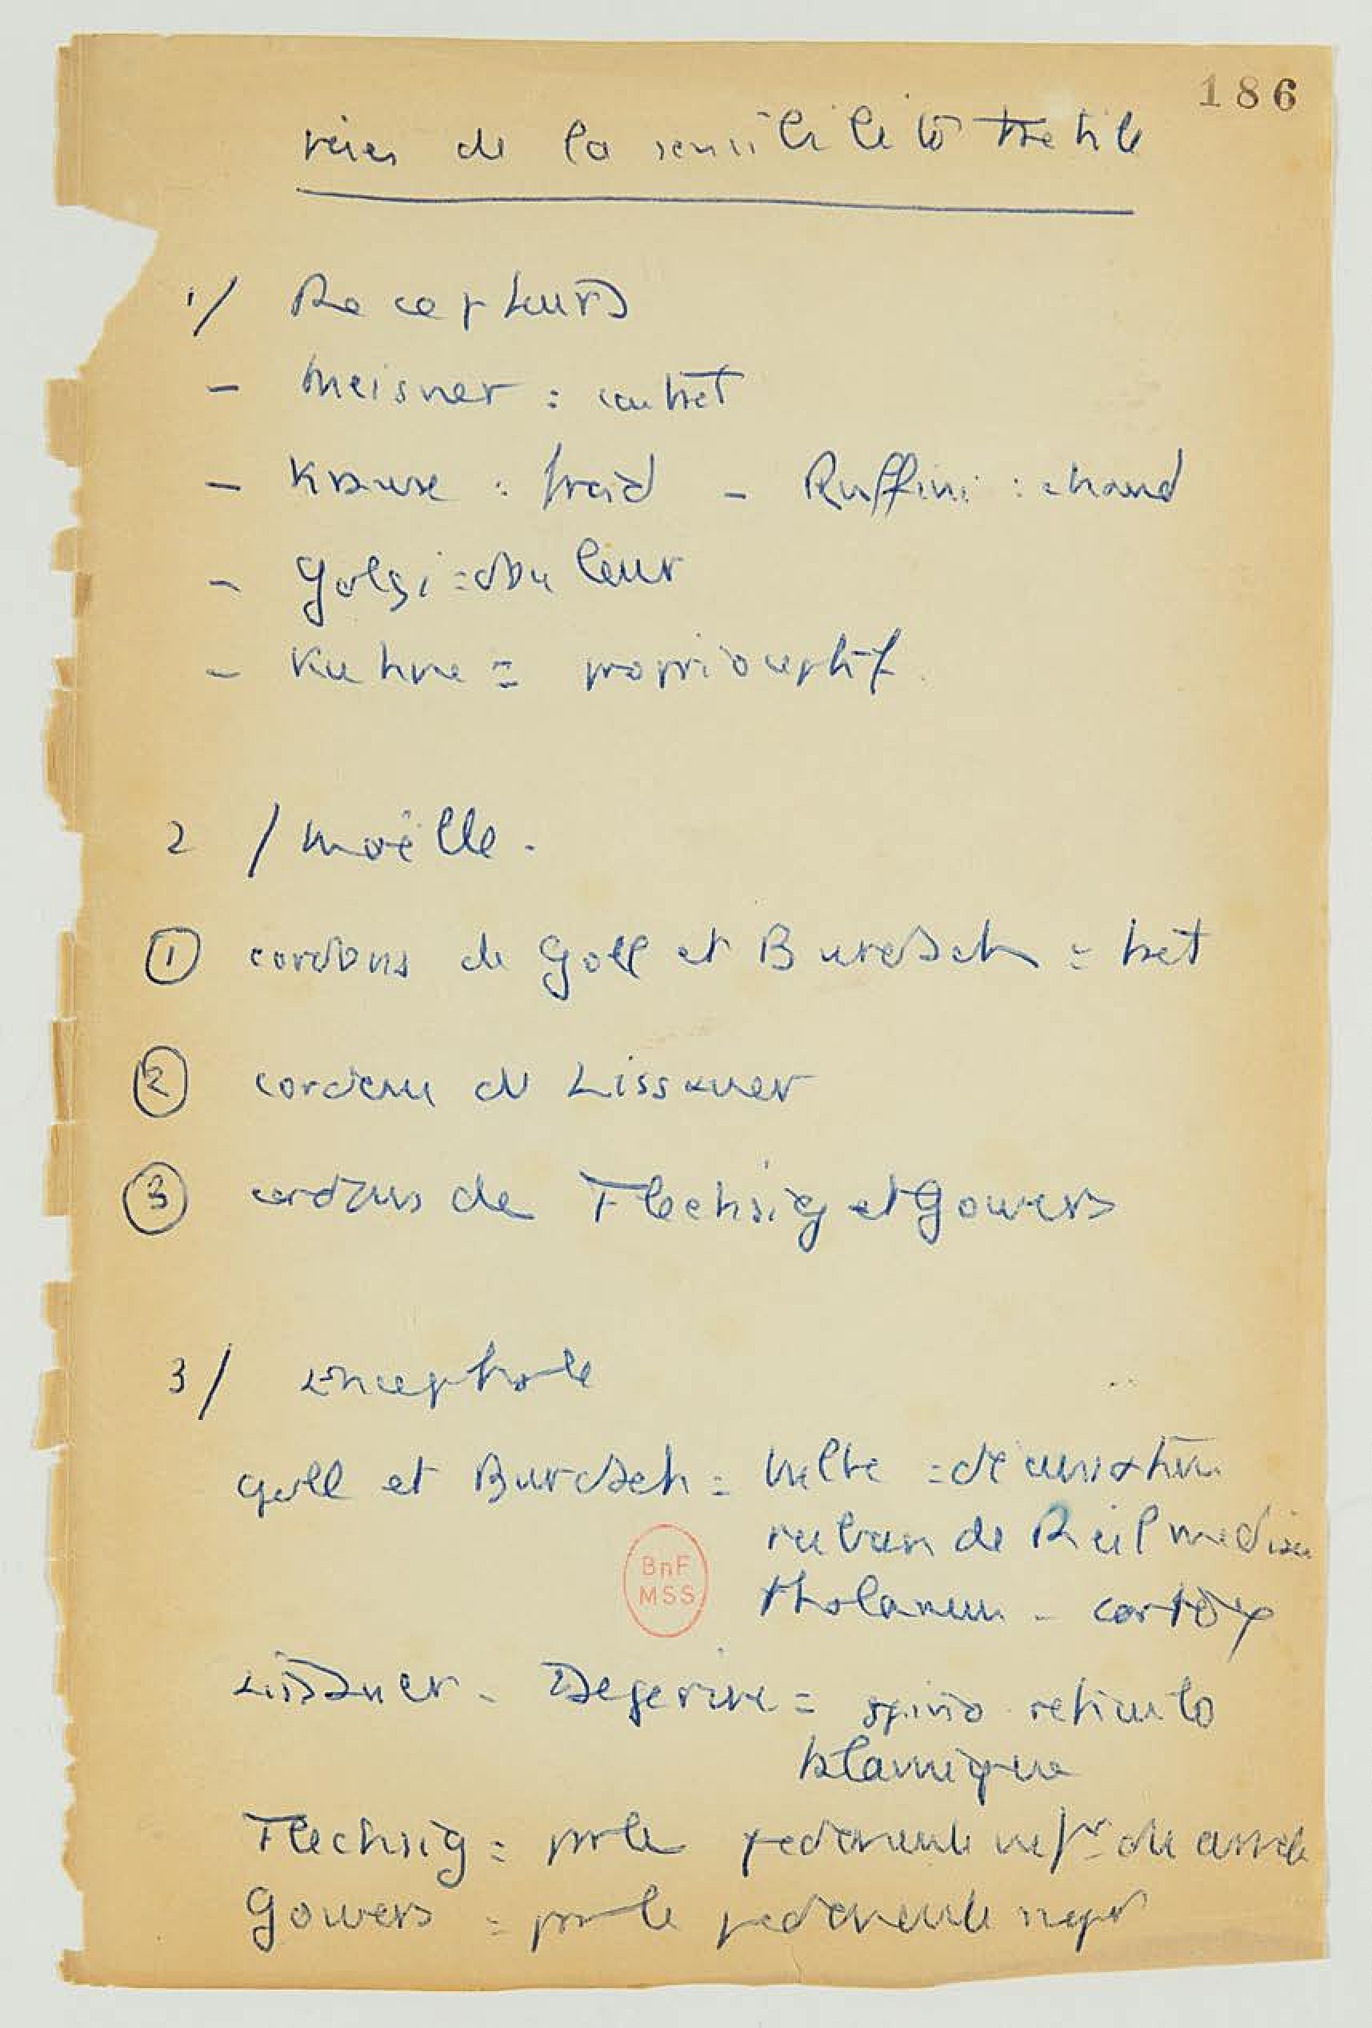 186
voies de la sensibilité tactile
1/ Recepteurs
- Meisner : contact
- Krause : froid - Ruffini : chaud
- Golgi = douleur
- Kuhne = proprioceptif
2 / moëlle.
① cordons de Goll et Burdach = tact
② cordon de Lissauer
③ cordons de Flechsig et Gowers
3/ Encephale
Goll et Burdach = bulbe =
ruban de Reil median
thalamus - cortex
Lissauer - Degerine = spino reticulo
thalamique
Flechsig = par le pedoncule inf<sup>r</sup>
Gowers = par le pedoncule sup<sup>r</sup>
BnF
MSS